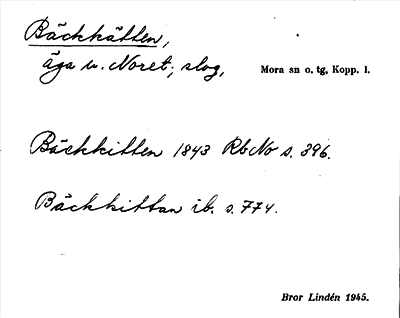 Bäckkätten,
äga u. Noret; slog,
Mora sn o. tg, Kopp. l.
Bäckkitten 1843 RbNo s. 396.
Bäckkittan ib. s. 774.
Bror Lindén 1945.